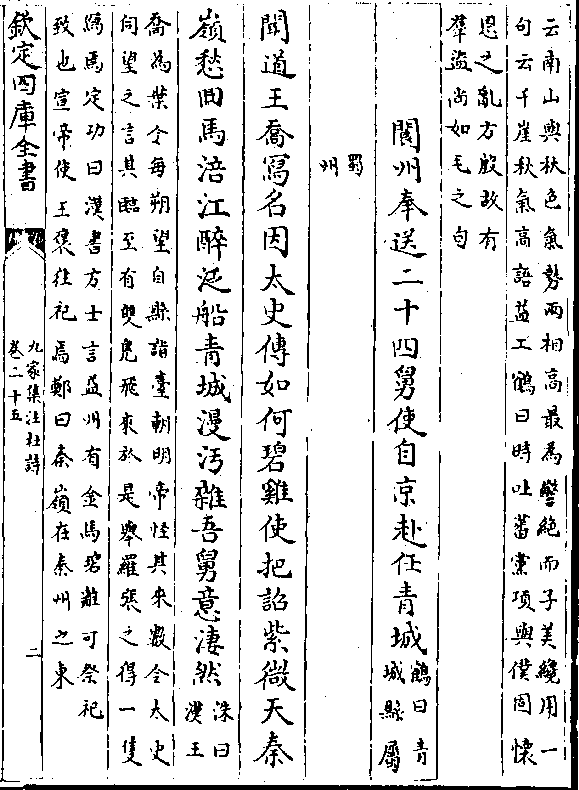 云南山與秋色氣勢兩相高最為警絶而子美纔用一
句云千崖秋氣高語益工鶴曰時吐蕃党項與僕固懷
恩之亂方殷故有
羣盜尚如毛之句
閬州奉送二十四舅使自京赴任青城
鶴曰青
城縣屬
蜀
州
聞道王喬舄名因太史傳如何碧雞使把詔紫微天秦
嶺愁回馬涪江醉泛船青城漫汚雜吾舅意淒然
洙曰
漢王
喬為葉令每朔望自縣詣臺朝明帝怪其來數令太史
伺望之言其臨至有雙鳬飛來於是舉羅張之得一隻
舄焉定功曰漢書方士言益州有金馬碧雞可祭祀
致也宣帝使王襃往祀焉鄭曰秦嶺在秦州之東
欽定四庫全書
九家集注杜詩
卷二十五
二